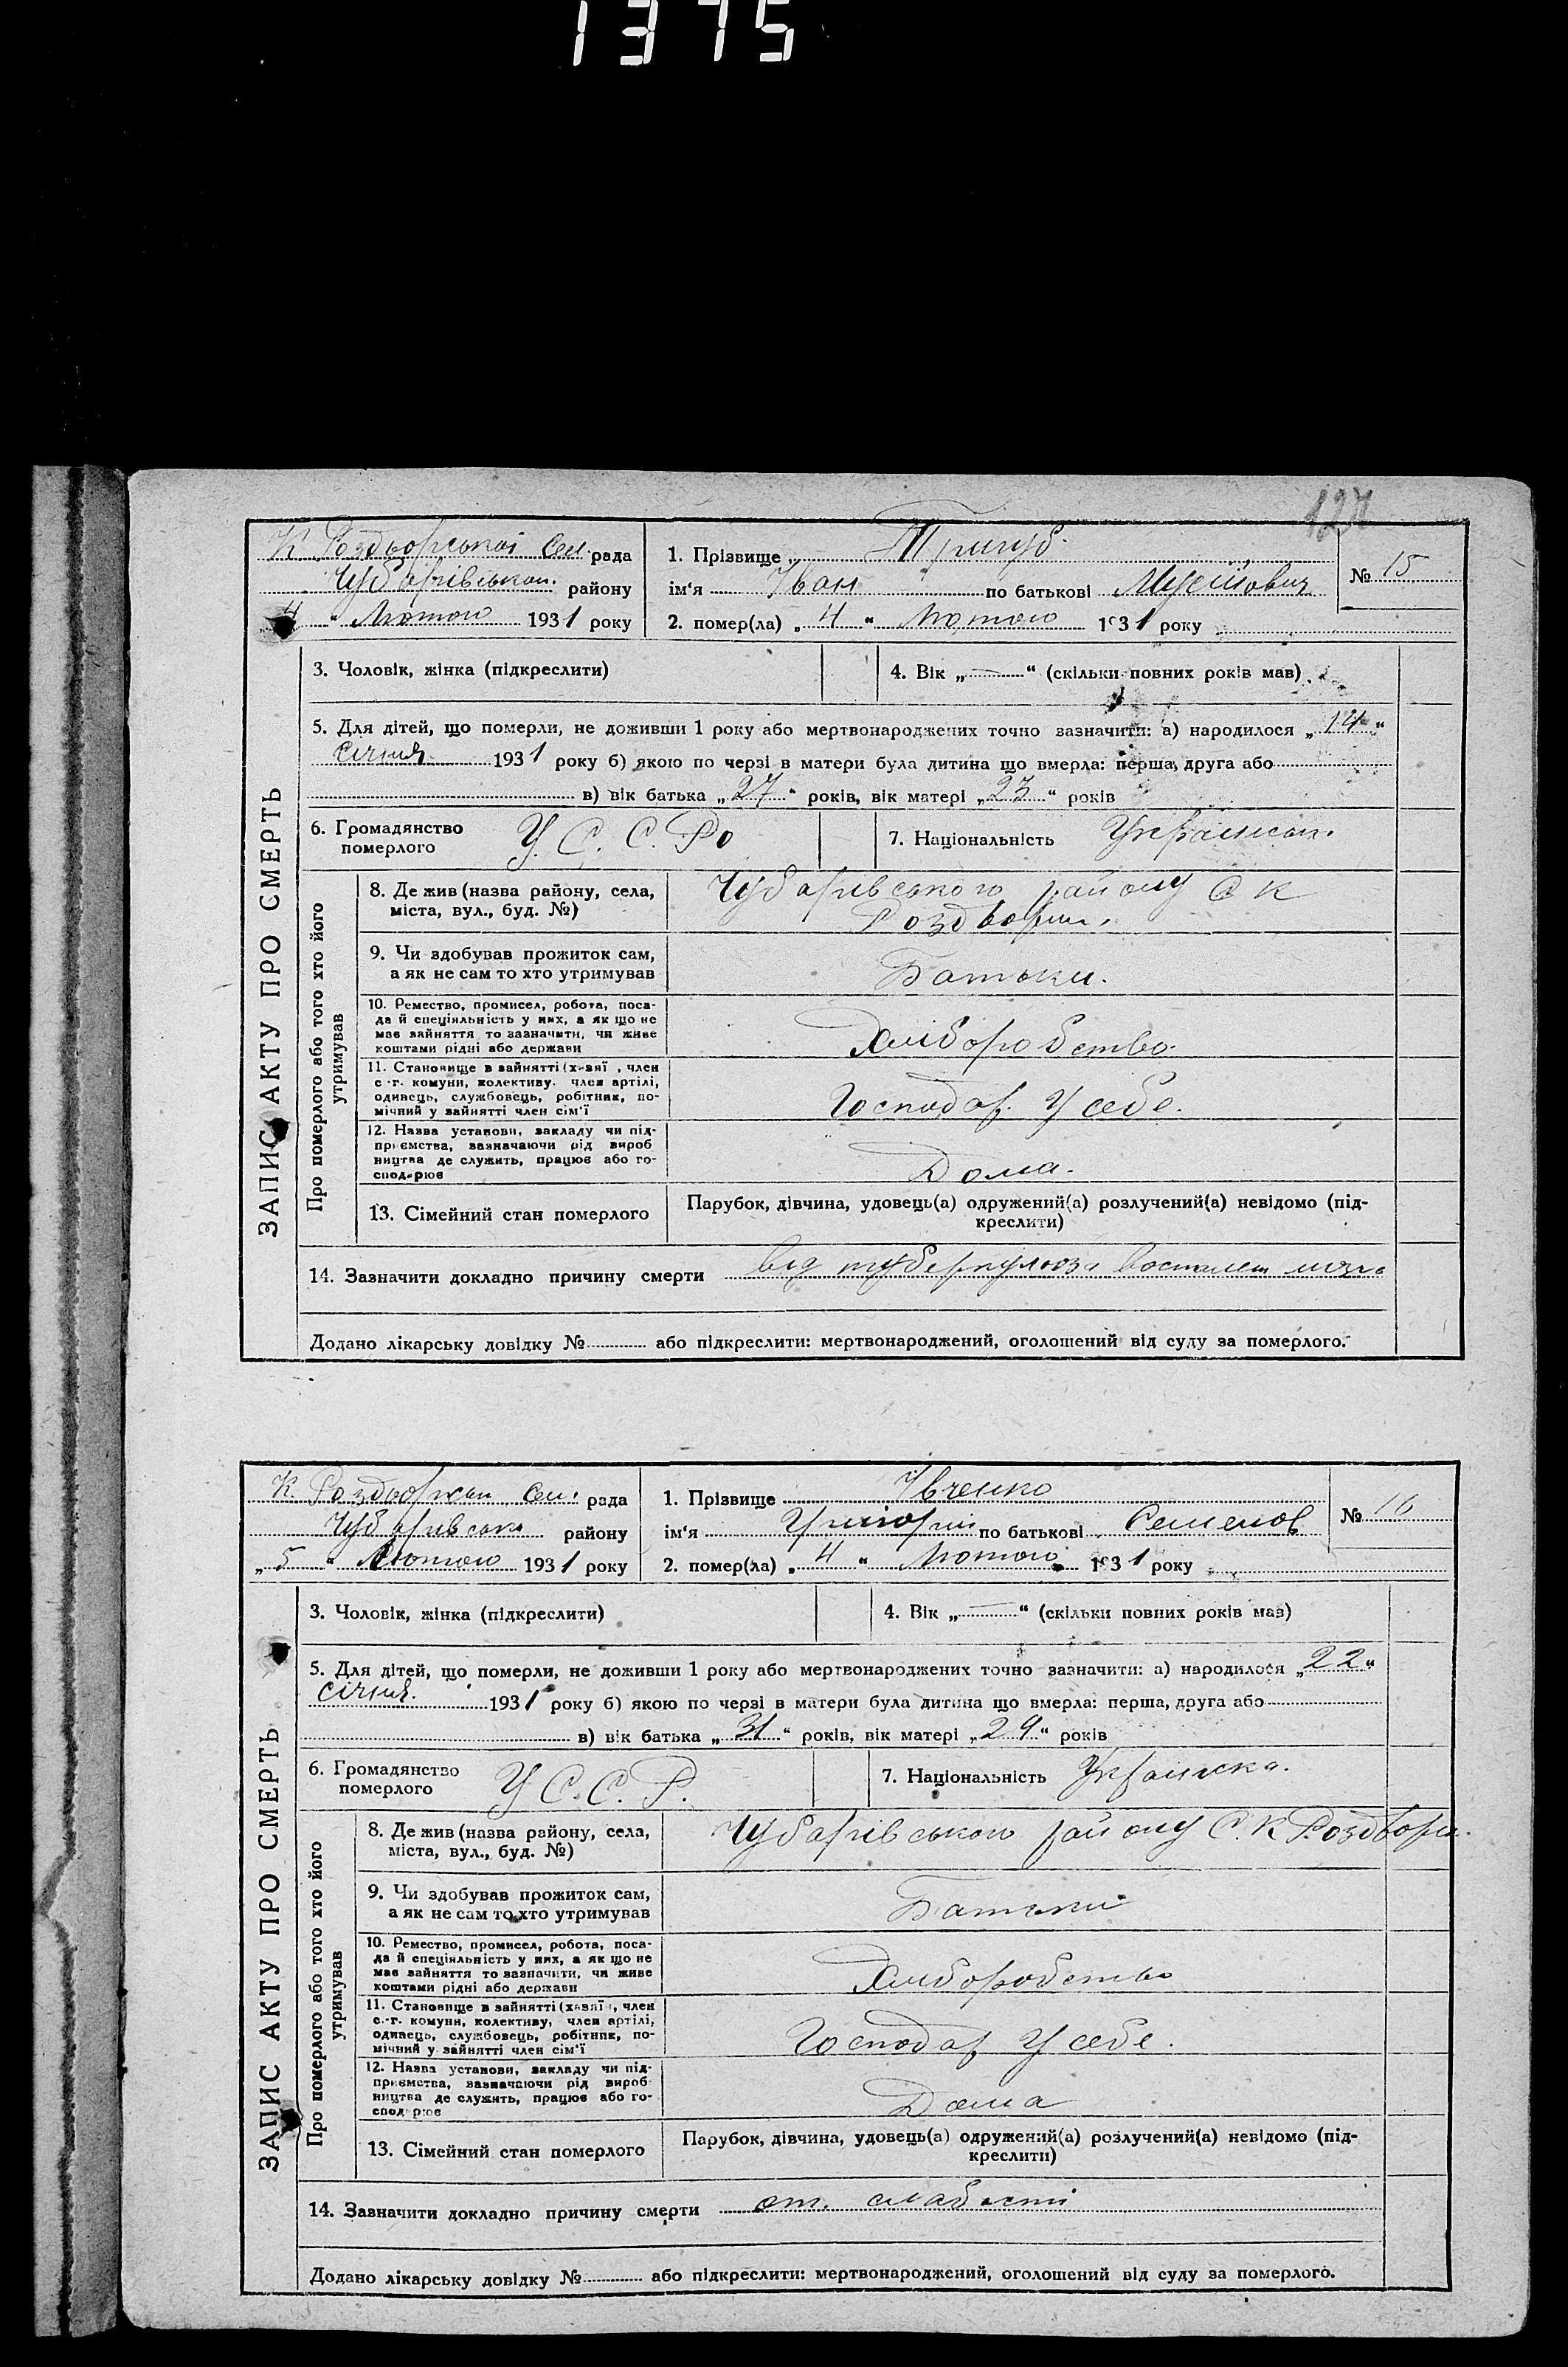 1375
127
К. Роздорської Сел. рада
Чубарівськой. району
"4" Лютого 1931 року
1. Прізвище Тригуб.
ім'я Іван по батькові
2. помер(ла) „4" Лютого 1931 року
№ 15
ЗАПИС АКТУ ПРО СМЕРТЬ
3. Чоловік, жінка (підкреслити)
4. Вік „—" (скільки повних років мав)
5. Для дітей, що померли, не доживши 1 року або мертвонароджених точно зазначити: а) народилося „14"
січня 1931 року б) якою по черзі в матери була дитина що вмерла: перша, друга або
в) вік батька „27" років, вік матері „23" років
6. Громадянство
померлого
У. С. С. Р
7. Національність
Про померлого або того хто його
утримував
8. Де жив (назва району, села,
міста, вул., буд. №)
Чубарівського району С К
Роздори.
9. Чи здобував прожиток сам,
а як не сам то хто утримував
Батьки.
10. Ремество, промисел, робота, поса-
да й спеціяльність у них, а як що не
має зайняття то зазначити, чи живе
коштами рідні або держави
Хліборобство.
11. Становище в зайнятті (хазяї, член
с.-г. комуни, колективу, член артілі,
одинець, службовець, робітник, по-
мічний у зайнятті член сім'ї
Господар. У себе.
12. Назва установи, закладу чи під-
приємства, зазначаючи рід вироб
ництва де служить, працює або го-
сподарює
Дома.
13. Сімейний стан померлого
Парубок, дівчина, удовець(а) одружений(а) розлучений(а) невідомо (під-
креслити)
14. Зазначити докладно причину смерти від туберкульоза
Додано лікарську довідку № або підкреслити: мертвонароджений, оголошений від суду за померлого.
К. Сел. рада
Чубарівсько району
„5" Лютого 1931 року
1. Прізвище Івченко
ім'я Григорий по батькові Семенов
2. помер(ла) „4" Лютого 1931 року
№ 16
ЗАПИС АКТУ ПРО СМЕРТЬ
3. Чоловік, жінка (підкреслити)
4. Вік „—" (скільки повних років мав)
5. Для дітей, що померли, не доживши 1 року або мертвонароджених точно зазначити: а) народилося „22"
січня. 1931 року б) якою по черзі в матери була дитина що вмерла: перша, друга або
в) вік батька „31" років, вік матері „29" років
6. Громадянство
померлого
У С. С. Р.
7. Національність Українска.
Про померлого або того хто його
утримував
8. Де жив (назва району, села,
міста, вул., буд. №)
Чубарівського району С. К
9. Чи здобував прожиток сам,
а як не сам то хто утримував
Батьки
10. Ремество, промисел, робота, поса-
да й спеціяльність у них, а як що не
має зайняття то зазначити, чи живе
коштами рідні або держави
Хліборобство
11. Становище в зайнятті (хазяї, член
с.-г. комуни, колективу, член артілі,
одинець, службовець, робітник, по-
мічний у зайнятті член сім'ї
Господар У себе.
12. Назва установи, закладу чи під-
приємства, зазначаючи рід вироб-
ництва де служить, працює або го-
сподарює
Дома
13. Сімейний стан померлого
Парубок, дівчина, удовець(а) одружений(а) розлучений(а) невідомо (під-
креслити)
14. Зазначити докладно причину смерти от. слабости
Додано лікарську довідку № або підкреслити: мертвонароджений, оголошений від суду за померлого.